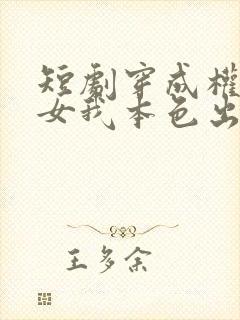 短劇穿成權
女我本色出
王多余